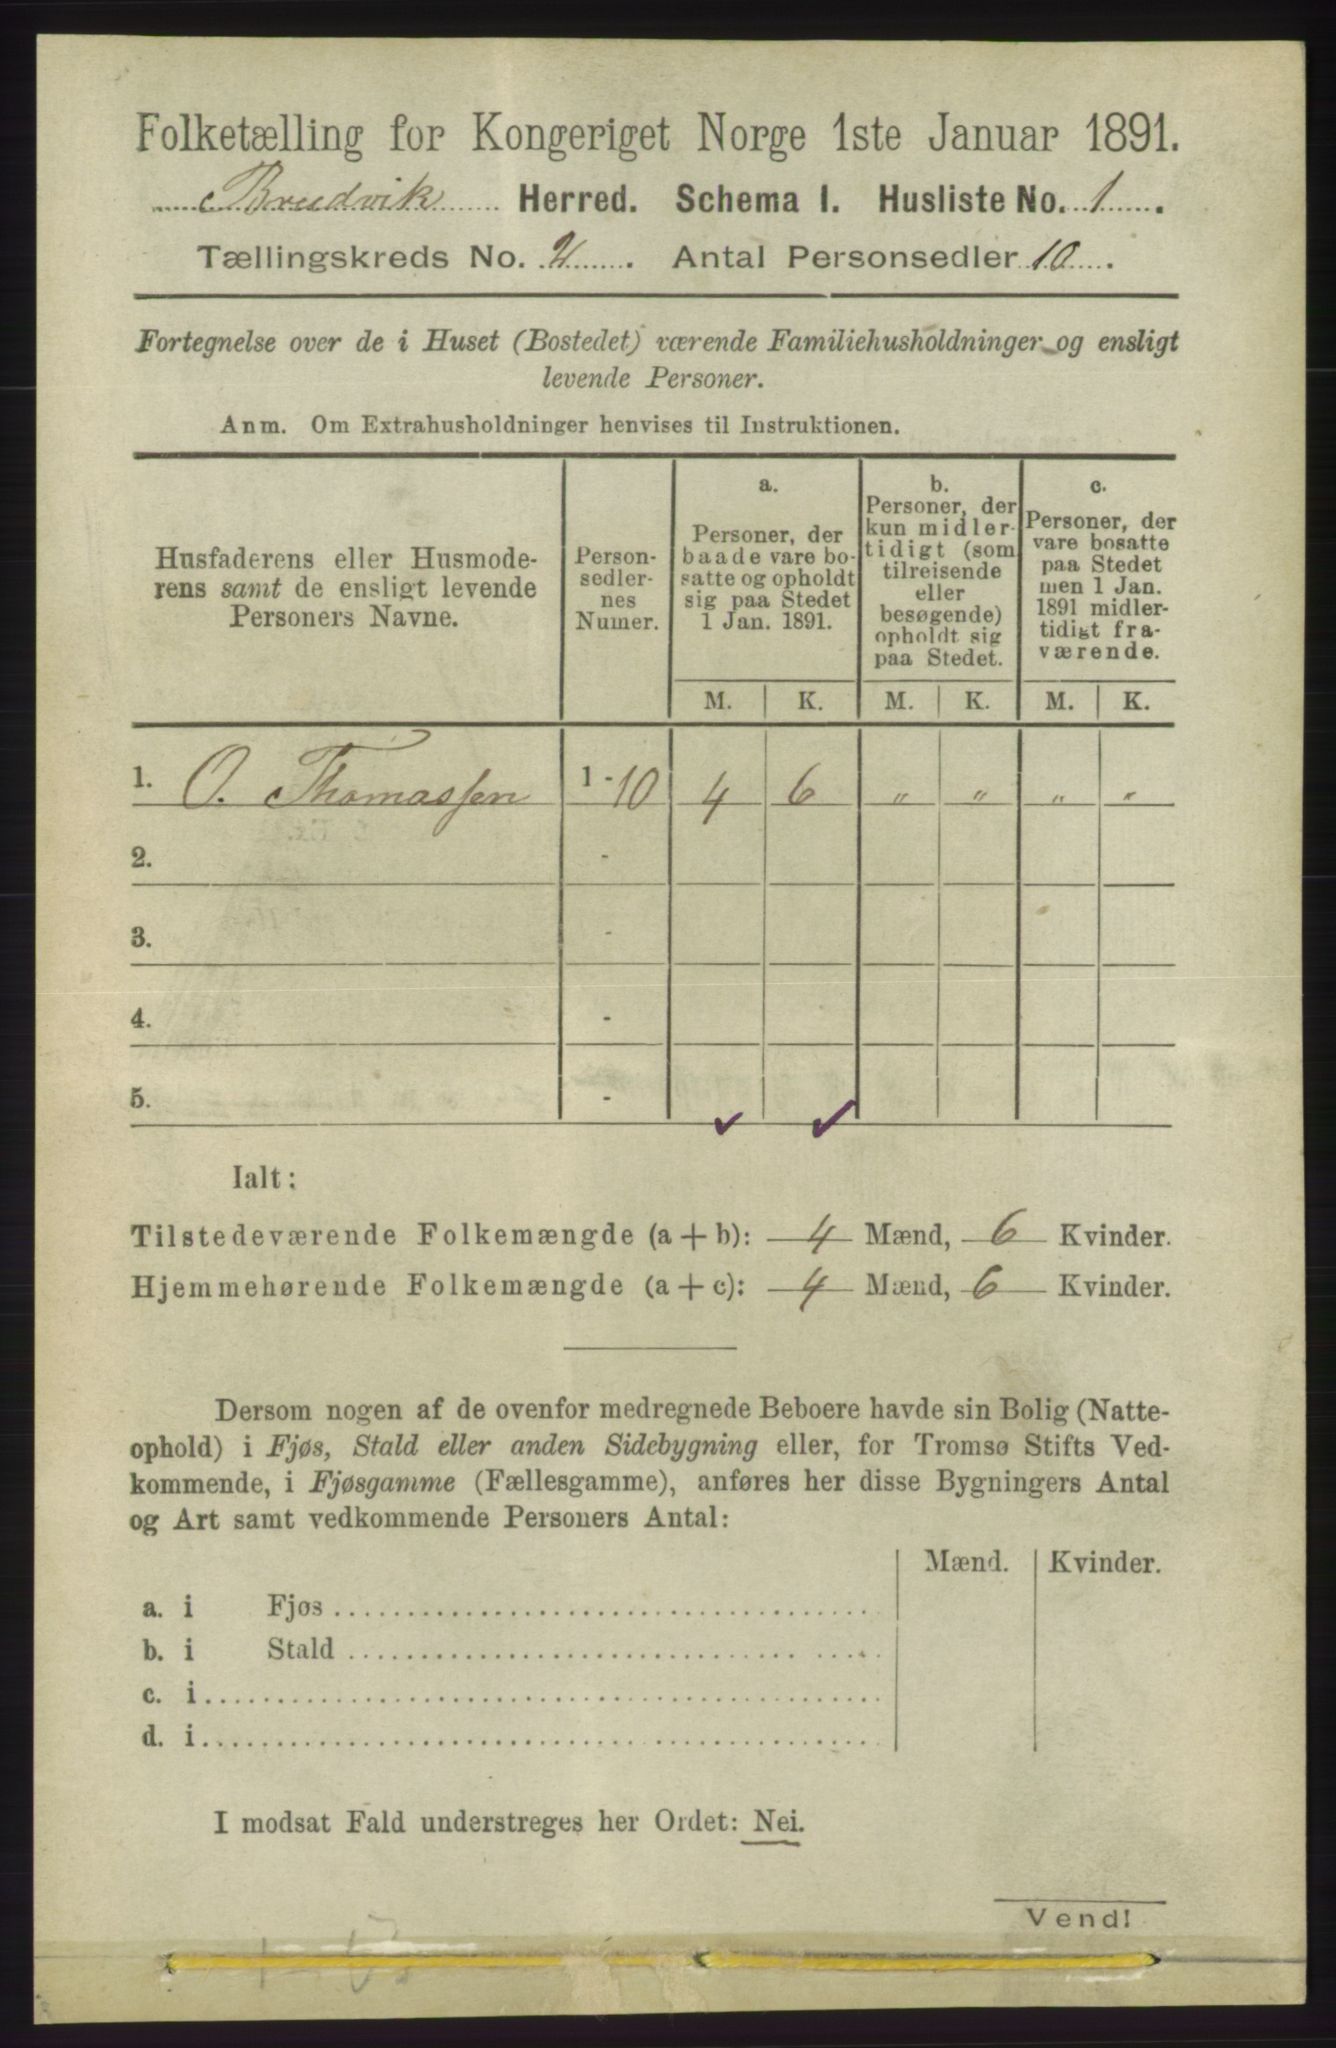 Folketælling for Kongeriget Norge 1ste Januar 1891.
Bruvik Herred. Schema I. Husliste No. 1.
Tællingskreds No. 2. Antal Personsedler 10.
Fortegnelse over de i Huset (Bostedet) værende Familiehusholdninger og ensligt
levende Personer.
Anm. Om Extrahusholdninger henvises til Instruktionen.
Husfaderens eller Husmode-
rens samt de ensligt levende
Personers Navne.
Person-
sedler-
nes
Numer.
a.
Personer, der
baade vare bo-
satte og opholdt
sig paa Stedet
1 Jan. 1891.
b.
Personer, der
kun midler-
tidigt (som
tilreisende
eller
besøgende)
opholdt sig
paa Stedet.
c.
Personer, der
vare bosatte
paa Stedet
men 1 Jan.
1891 midler-
tidigt fra-
værende.
M. K. M. K. M. K.
1. O. Thomassen 1 - 10 4 6 " " " "
2. -
3. -
4. -
5. -
Ialt:
Tilstedeværende Folkemængde (a + b): 4 Mænd, 6 Kvinder.
Hjemmehørende Folkemængde (a + c): 4 Mænd, 6 Kvinder.
Dersom nogen af de ovenfor medregnede Beboere havde sin Bolig (Natte-
ophold) i Fjøs, Stald eller anden Sidebygning eller, for Tromsø Stifts Ved-
kommende, i Fjøsgamme (Fællesgamme), anføres her disse Bygningers Antal
og Art samt vedkommende Personers Antal:
Mænd. Kvinder.
a. i Fjøs
b. i Stald
c. i
d. i
I modsat Fald understreges her Ordet: Nei.
Vend!